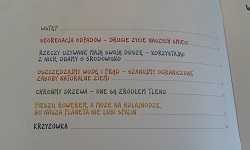 WSTĘP
SEGREGACJA ODPADÓW - DRUGIE ŻYCIE NASZYCH ŚMIECI
RZECZY UŻYWANE MAJĄ SWOJĄ DUSZĘ - KORZYSTAJĄC
Z NICH DBAMY O ŚRODOWISKO
OSZCZĘDZAJMY WODĘ I PRĄD - SZANUJMY OGRANICZONE
ZASOBY NATURALNE ZIEMI
CHROŃMY DRZEWA - ONE SĄ ŹRÓDŁEM TLENU
PIESZO, ROWEREM, A MOŻE NA HULAJNODZE,
BO NASZA PLANETA NIE LUBI SPALIN
KRZYŻÓWKA